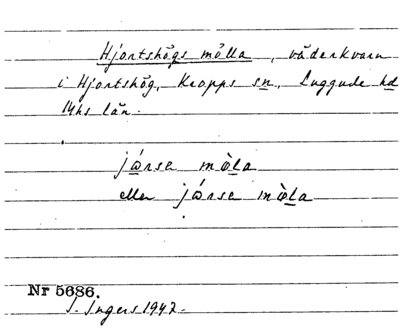 Hjortshögs mölla, väderkvarn
i Hjortshög, Kropps sn., Luggude hd
Mhs län.
jǻrsa mö̀la
eller jǻrsa mœ̀la
Nr 5686.
I. Ingers 1942.